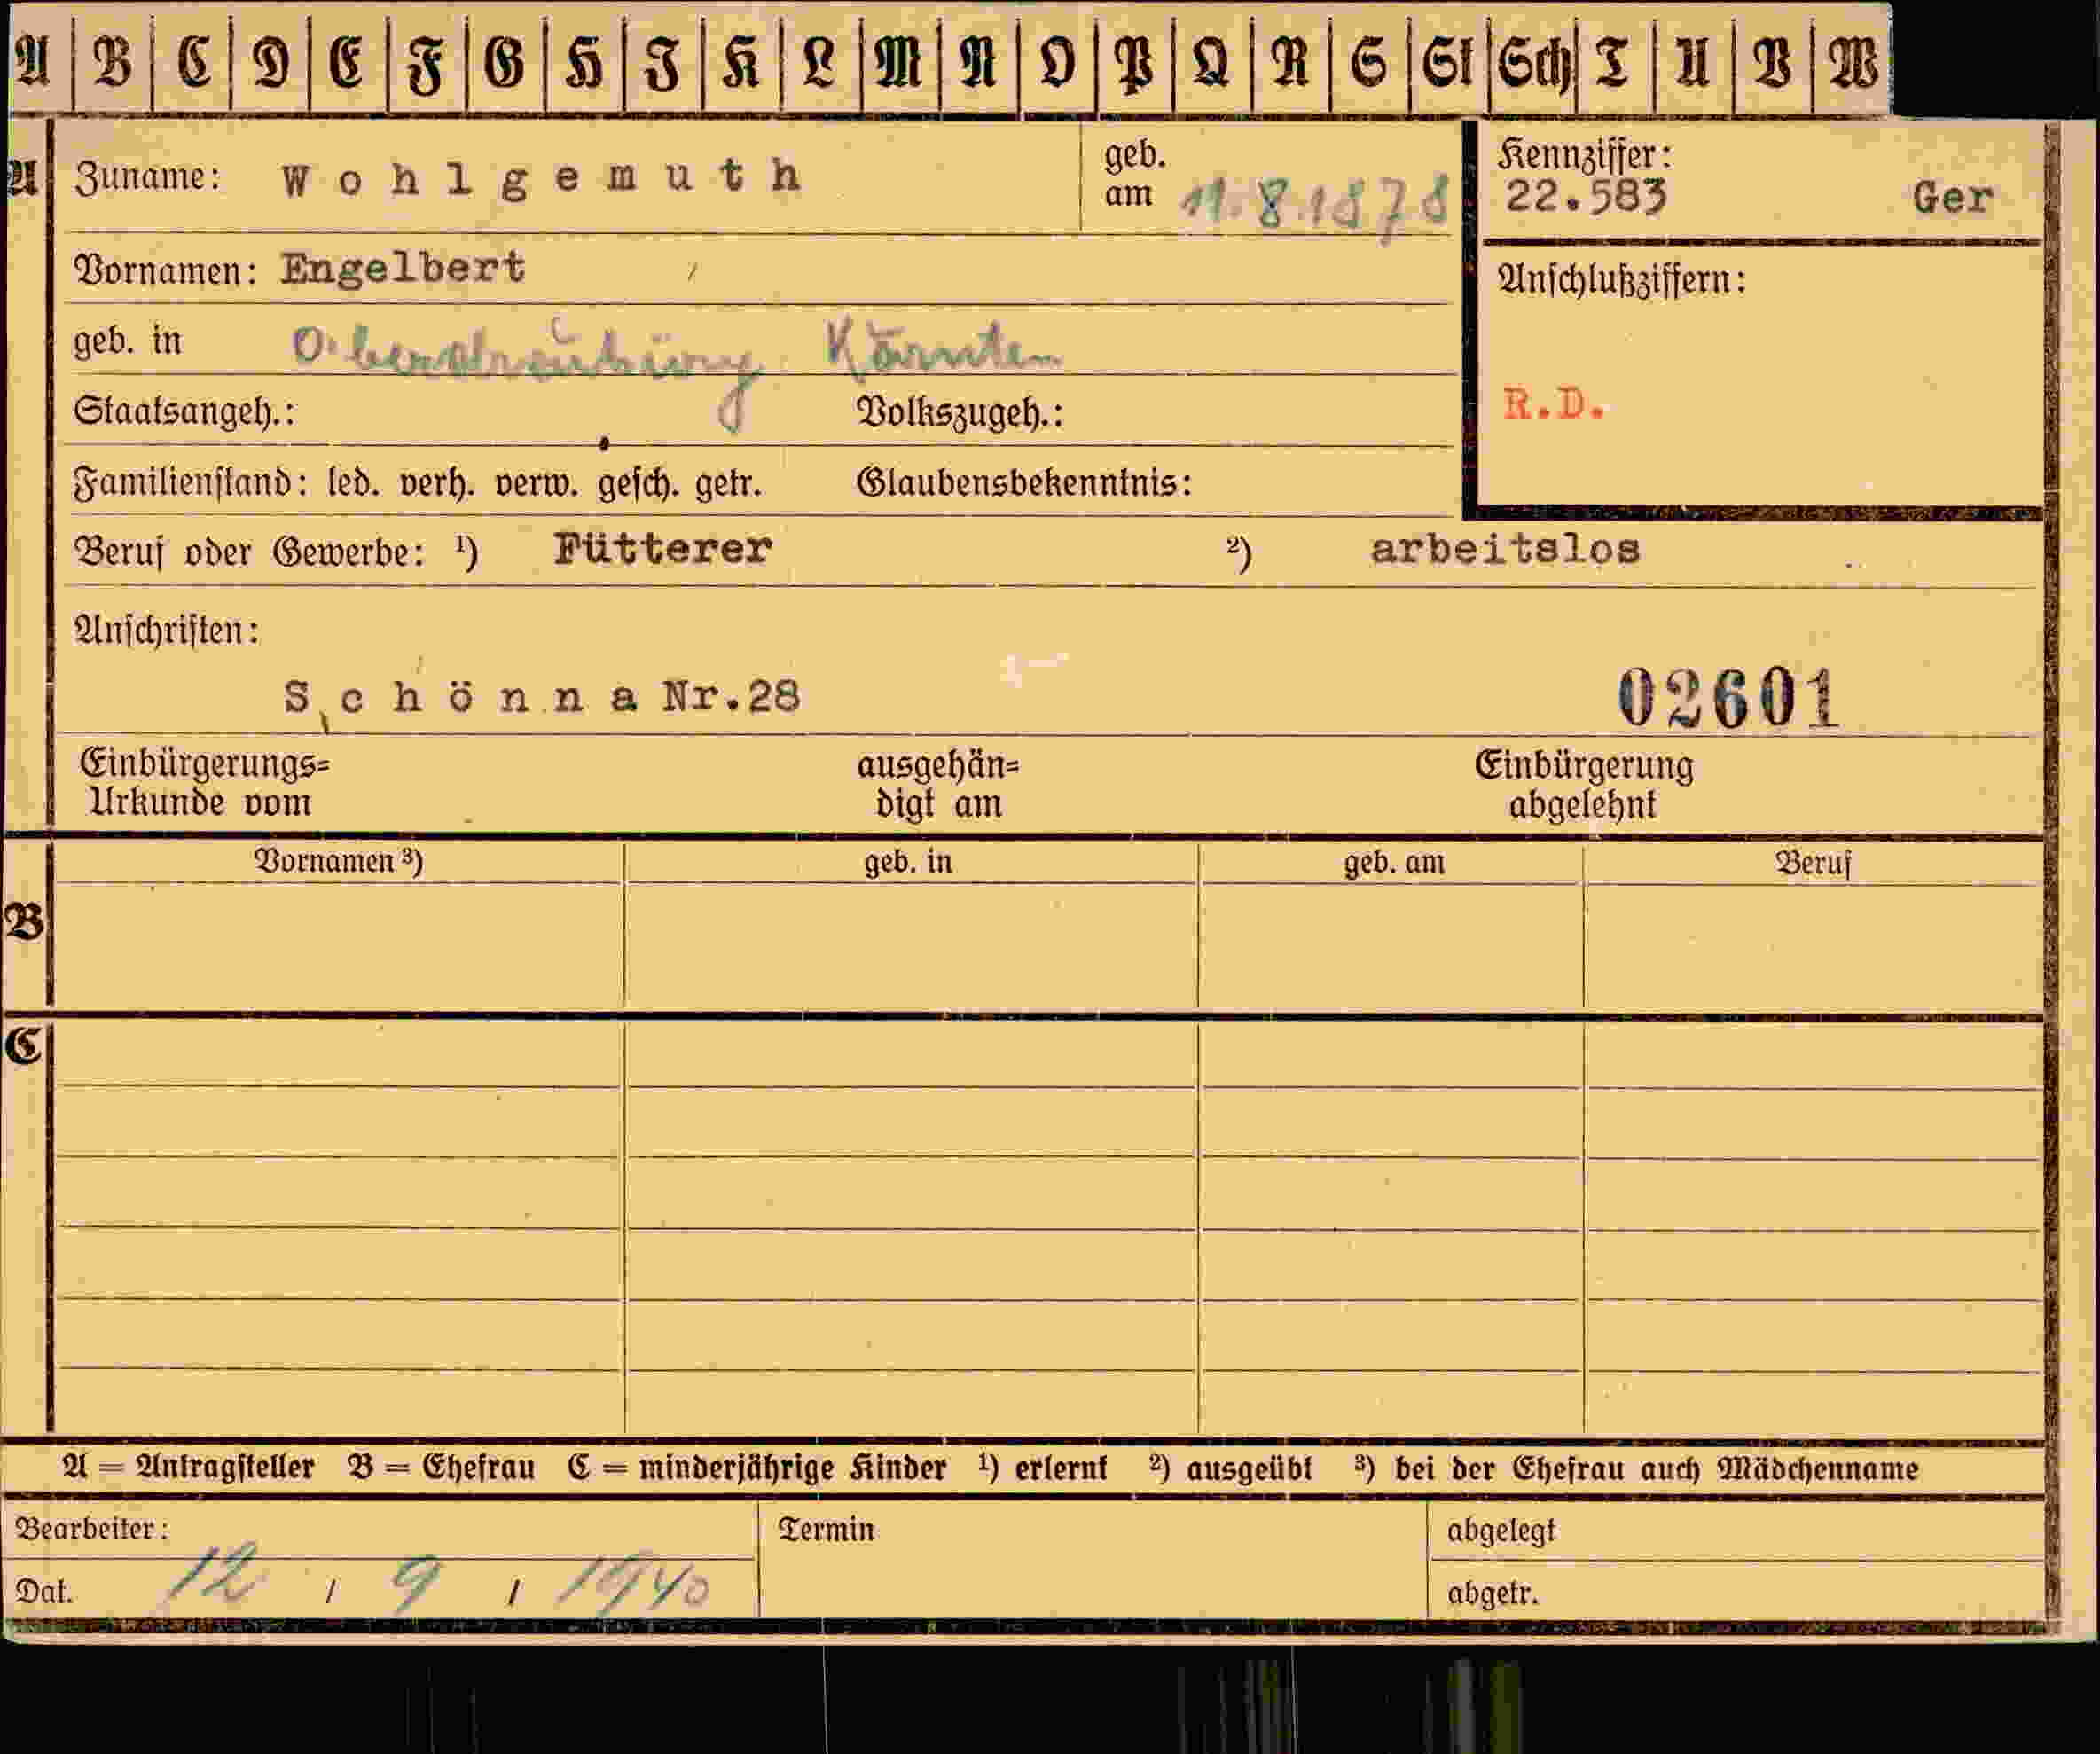 A B C D E F G H I K L M N O P Q R S St Sch T U V W
A Zuname: Wohlgemuth geb. am 11.8.1878 Kennziffer:
22.583 Ger
Vornamen: Engelbert Anschlußziffern:
geb. in Oberdrauburg Kärnten
Staatsangeh.: Volkszugeh.: R.D.
Familienstand: led. verh. verw. gesch. getr. Glaubensbekenntnis:
Beruf oder Gewerbe: ¹) Fütterer ²) arbeitslos
Anschriften:
Schönna Nr.28 02601
Einbürgerungs= ausgehän= Einbürgerung
Urkunde vom digt am abgelehnt
Vornamen ³) geb. in geb. am Beruf
B
C
A = Antragsteller B = Ehefrau C = minderjährige Kinder ¹) erlernt ²) ausgeübt ³) bei der Ehefrau auch Mädchenname
Bearbeiter: Termin abgelegt
Dat. 12 / 9 / 1940 abgetr.